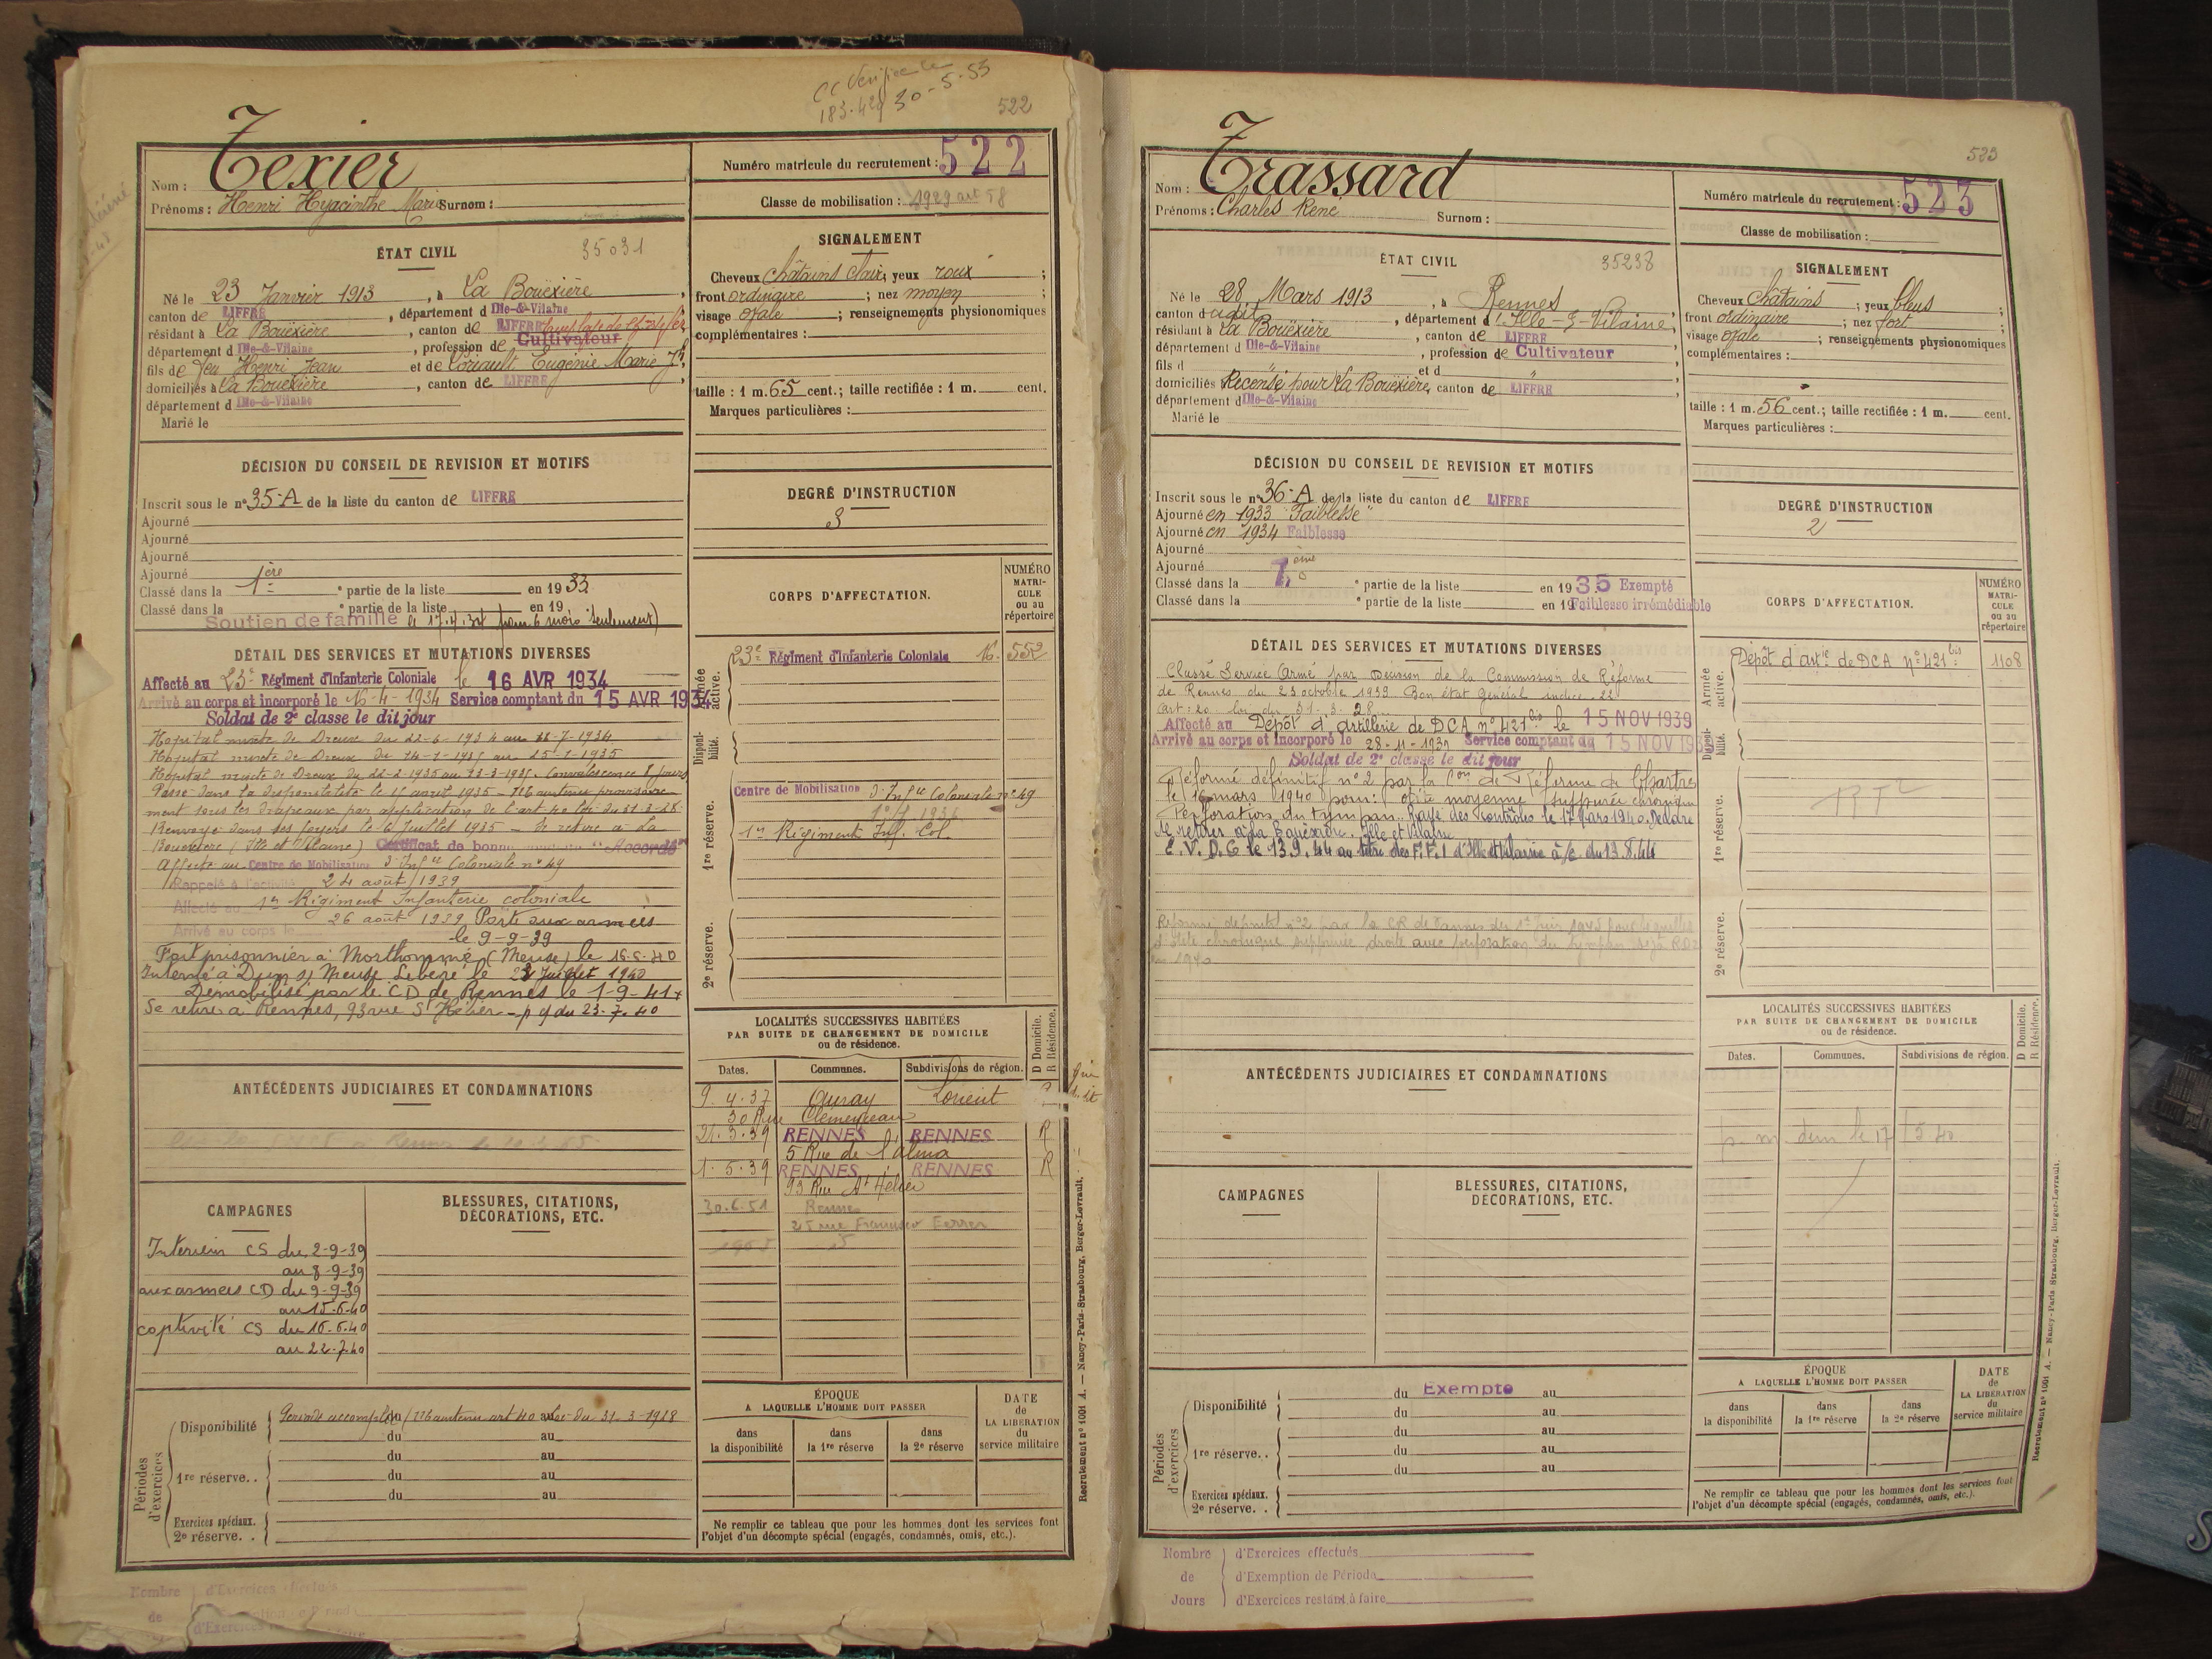 CC Vérifié le
183.429 30-5-53
522
Texier
Nom :
Prénoms : Henri Hyacinthe Marie Surnom :
Numéro matricule du recrutement : 522
Classe de mobilisation : 1929 art 58
ÉTAT CIVIL 35031
Né le 23 Janvier 1913, à La Bouëxière,
canton de LIFFRE, département d Ille-&-Vilaine
résidant à La Bouëxière, canton de LIFFRE
département d Ille-&-Vilaine, profession de Cultivateur
fils de feu Henri Jean et de Loriault Eugénie Marie
domiciliés à La Bouëxière, canton de LIFFRE,
département d Ille-&-Vilaine
Marié le
SIGNALEMENT
Cheveux châtains clair; yeux roux;
front ordinaire; nez moyen;
visage ovale; renseignements physionomiques
complémentaires :
taille : 1 m. 65 cent.; taille rectifiée : 1 m. cent.
Marques particulières :
DÉCISION DU CONSEIL DE REVISION ET MOTIFS
Inscrit sous le n° 35-A de la liste du canton de LIFFRE
Ajourné
Ajourné
Ajourné
Ajourné
Classé dans la 1ère e partie de la liste en 1933
Classé dans la e partie de la liste en 19
Soutien de famille le 17.4.34 (pour 6 mois seulement)
DEGRÉ D'INSTRUCTION
3
DÉTAIL DES SERVICES ET MUTATIONS DIVERSES
Affecté au 23e Régiment d'Infanterie Coloniale le 16 AVR 1934
Arrivé au corps et incorporé le 16-4-1934 Service comptant du 15 AVR 1934
Soldat de 2e classe le dit jour
Hopital mixte de Dreux du 22-6-1934 au
Hopital mixte de Dreux du au 25-1-1935
Hopital mixte de Dreux du 22-2-1935 au 23-3-1935. Convalescence 8 jours
Passé dans la disponibilité le 15 avril 1935 - Maintenu provisoire-
ment sous les drapeaux par application de l'art 40 loi du 31-3-28
Renvoyé dans ses foyers le 6 Juillet 1935 - Se retire à La
Bouëxière (Ille et Vilaine) Certificat de bonne conduite "Accordé"
Affecté au Centre de Mobilisation d'Infie Coloniale n° 49
Rappelé à l'activité 24 août 1939
Affecté au 1er Régiment Infanterie coloniale
Arrivé au corps le 26 août 1939 Parti aux armées
le 9-9-39
Fait prisonnier à Monthommé (Meuse) le 16-6-40
Interné à Dun s/ Meuse Libéré le 23 Juillet 1940
Démobilisé par le CD de Rennes le 1-9-41
Se retire à Rennes, 93 rue St Hélier - p g du 23-7-40
CORPS D'AFFECTATION.
NUMÉRO MATRI-CULE ou au répertoire
Armée active.
23e Régiment d'Infanterie Coloniale 16. 552
Disponi-bilité.
1re réserve.
Centre de Mobilisation d'Infie Coloniale n° 49
1er Régiment Inf. Col
2e réserve.
LOCALITÉS SUCCESSIVES HABITÉES
PAR SUITE DE CHANGEMENT DE DOMICILE
ou de résidence.
D Domicile. R Résidence.
Dates. Communes. Subdivisions de région.
9.4.37 Auray Lorient
30 Rue Clémenceau
21.3.39 RENNES RENNES R
5 Rue de l'Alma
1.5.39 RENNES RENNES R
93 Rue St Hélier
30.6.51 Rennes
25 rue Francisco Ferrer
ANTÉCÉDENTS JUDICIAIRES ET CONDAMNATIONS
CAMPAGNES
BLESSURES, CITATIONS, DÉCORATIONS, ETC.
Intérieur CS du 2-9-39
au 8-9-39
aux armées CD du 9-9-39
au 15-6-40
captivité CS du 16-6-40
au 22-7-40
Périodes d'exercices
Disponibilité Période accomplie (Maintenu art 40 loi du 31-3-1928
du au
du au
1re réserve. . du au
du au
Exercices spéciaux.
2e réserve. .
ÉPOQUE
A LAQUELLE L'HOMME DOIT PASSER
dans la disponibilité dans la 1re réserve dans la 2e réserve
DATE de LA LIBERATION du service militaire
Ne remplir ce tableau que pour les hommes dont les services font
l'objet d'un décompte spécial (engagés, condamnés, omis, etc.).
Recrutement n° 1001 A. — Nancy-Paris-Strasbourg, Berger-Levrault.
Nombre de
d'Exercices effectués
523
Trassard
Nom :
Prénoms : Charles René Surnom :
Numéro matricule du recrutement : 523
Classe de mobilisation :
ÉTAT CIVIL 35238
Né le 28 Mars 1913, à Rennes
canton d udit, département d'Ille-&-Vilaine,
résidant à La Bouëxière, canton de LIFFRE
département d Ille-&-Vilaine, profession de Cultivateur
fils d et d
domiciliés Recensé pour La Bouëxière, canton de LIFFRE
département d Ille-&-Vilaine
Marié le
SIGNALEMENT
Cheveux châtains; yeux bleus;
front ordinaire; nez fort;
visage ovale; renseignements physionomiques
complémentaires :
taille : 1 m. 56 cent.; taille rectifiée : 1 m. cent.
Marques particulières :
DÉCISION DU CONSEIL DE REVISION ET MOTIFS
Inscrit sous le n° 36-A de la liste du canton de LIFFRE
Ajourné en 1933 "Faiblesse"
Ajourné en 1934 Faiblesse
Ajourné
Ajourné
Classé dans la e partie de la liste en 1935 Exempté
Classé dans la e partie de la liste en 19 Faiblesse irrémédiable
DEGRÉ D'INSTRUCTION
2
DÉTAIL DES SERVICES ET MUTATIONS DIVERSES
Classé Service Armé par décision de la Commission de Réforme
de Rennes du 23 octobre 1939 Bon état général indice 22
art : 20 loi du 31-3-28
Affecté au Dépôt d'artillerie de DCA n° 421 bis le 15 NOV 1939
Arrivé au corps et incorporé le 28-11-1939 Service comptant du 15 NOV 1939
Soldat de 2e classe le dit jour
Réformé définitif n° 2 par la Con de Réforme de Chartres
le 16 mars 1940 pour : otite moyenne suppurée chronique
Perforation du tympan. Rayé des contrôles le 17 Mars 1940. Déclare
se retirer à La Bouëxière. Ille et Vilaine
E.V.D.G le 13.9.44 au titre des F.F.I d'Ille et Vilaine à/c du 13.8.44
Réformé définitif n° 2 par la CR de Vannes du 1er Juin 1945 pour séquelles
d'otite chronique suppurée droite avec perforation du tympan déjà RD2
en 1940
CORPS D'AFFECTATION.
NUMÉRO MATRI-CULE ou au répertoire
Armée active.
Dépôt d'artie de DCA n° 421 bis 1108
Disponi-bilité.
1re réserve.
2e réserve.
LOCALITÉS SUCCESSIVES HABITÉES
PAR SUITE DE CHANGEMENT DE DOMICILE
ou de résidence.
D Domicile. R Résidence.
Dates. Communes. Subdivisions de région.
ANTÉCÉDENTS JUDICIAIRES ET CONDAMNATIONS
CAMPAGNES
BLESSURES, CITATIONS, DÉCORATIONS, ETC.
Périodes d'exercices
Disponibilité du Exempté au
du au
du au
1re réserve. . du au
du au
Exercices spéciaux.
2e réserve. .
ÉPOQUE
A LAQUELLE L'HOMME DOIT PASSER
dans la disponibilité dans la 1re réserve dans la 2e réserve
DATE de LA LIBERATION du service militaire
Ne remplir ce tableau que pour les hommes dont les services font
l'objet d'un décompte spécial (engagés, condamnés, omis, etc.).
Recrutement n° 1001 A. — Nancy-Paris-Strasbourg, Berger-Levrault.
Nombre de Jours
d'Exercices effectués
d'Exemption de Période
d'Exercices restant à faire